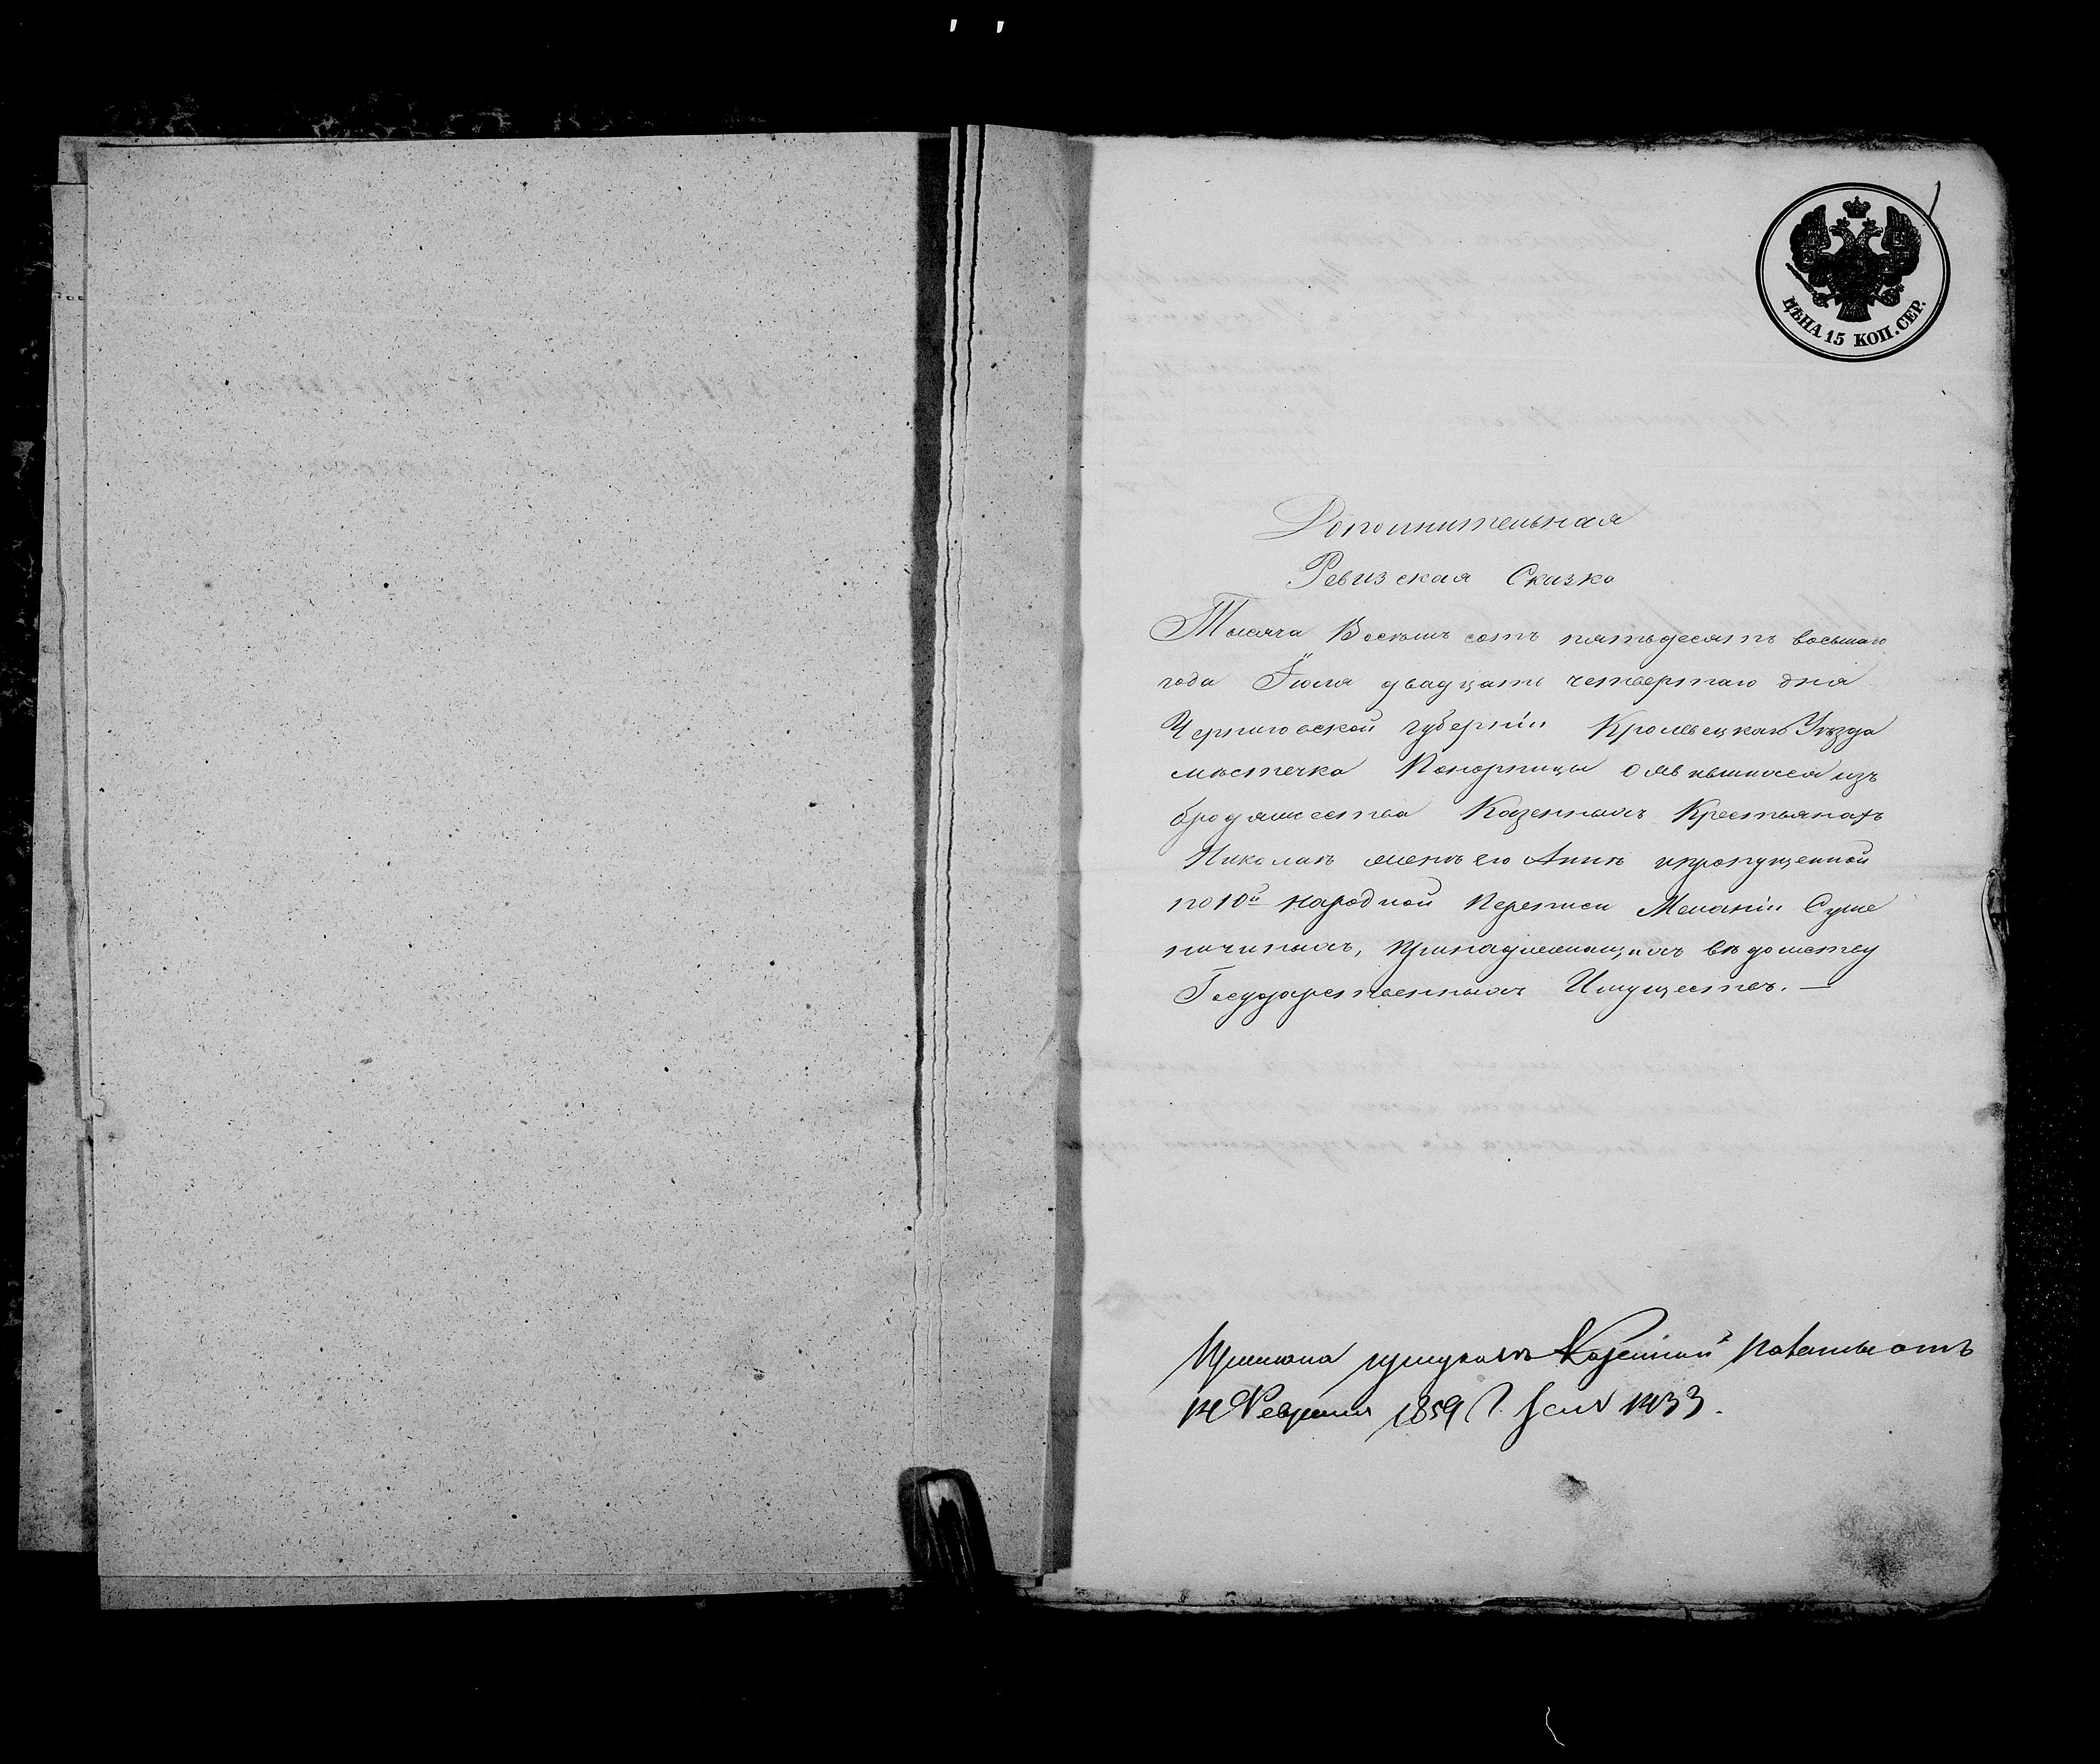 ЦѢНА 15 КОП. СЕР.
Дополнительная
Ревизская Сказка
Тысяча Восемь сотъ пятьдесятъ восьмаго
года Іюля двадцать четвертаго дня
Черниговской губерніи Кролевецкаго Уѣзда
мѣстечка Понорницы о явившихся изъ
бродяжества Казенныхъ Крестьянахъ
Николаѣ женѣ его Аннѣ и пропущенной
по 10й народной Переписи Меланіи
принадлежащихъ вѣдомству
Государственныхъ Имуществъ. —
при указѣ Казенной Палаты отъ
14 Февраля 1859 г. за № 1433.